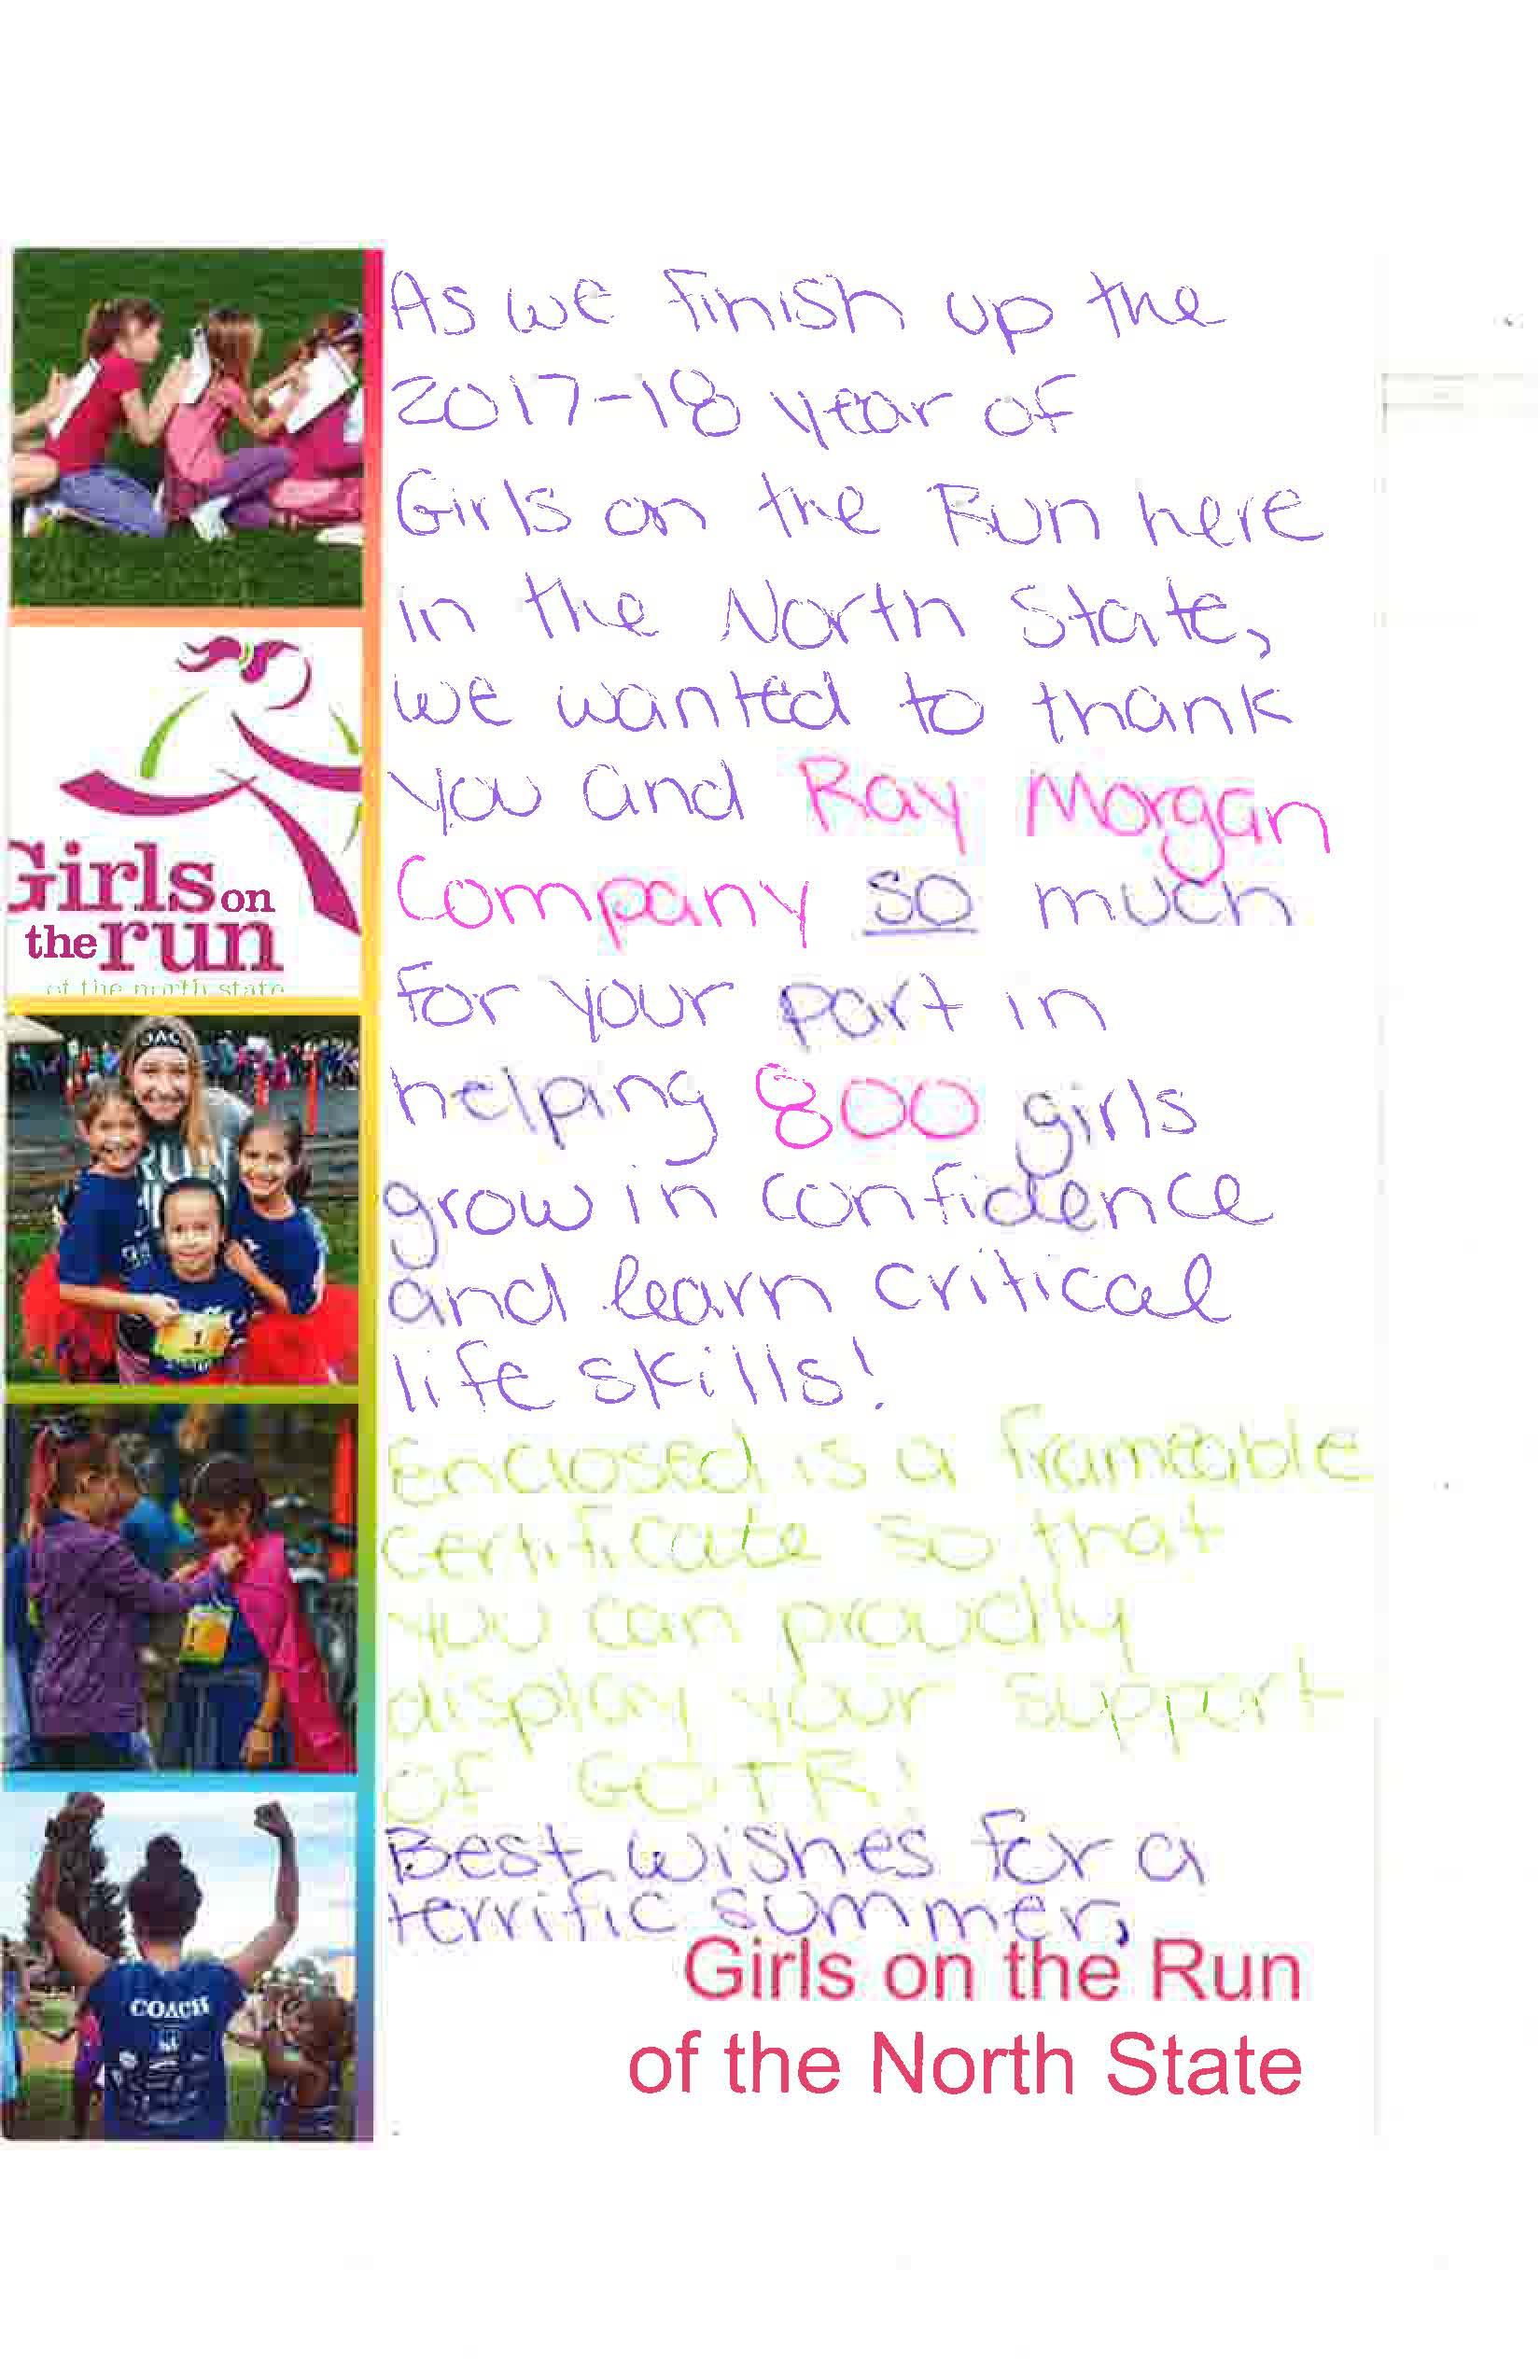 As we finish up the
2017-18 year of
Girls on the Run here
in the North State,
we wanted to thank
you and Ray Morgan
Company so much
for your part in
helping 800 girls
grow in confidence
and learn critical
life skills!
Enclosed is a frameable
certificate so that
you can proudly
display your support
of GOTR!
Best wishes for a
terrific summer,
Girls on the Run
of the North State
Girls on
the run
of the north state
RUN
1
COACH